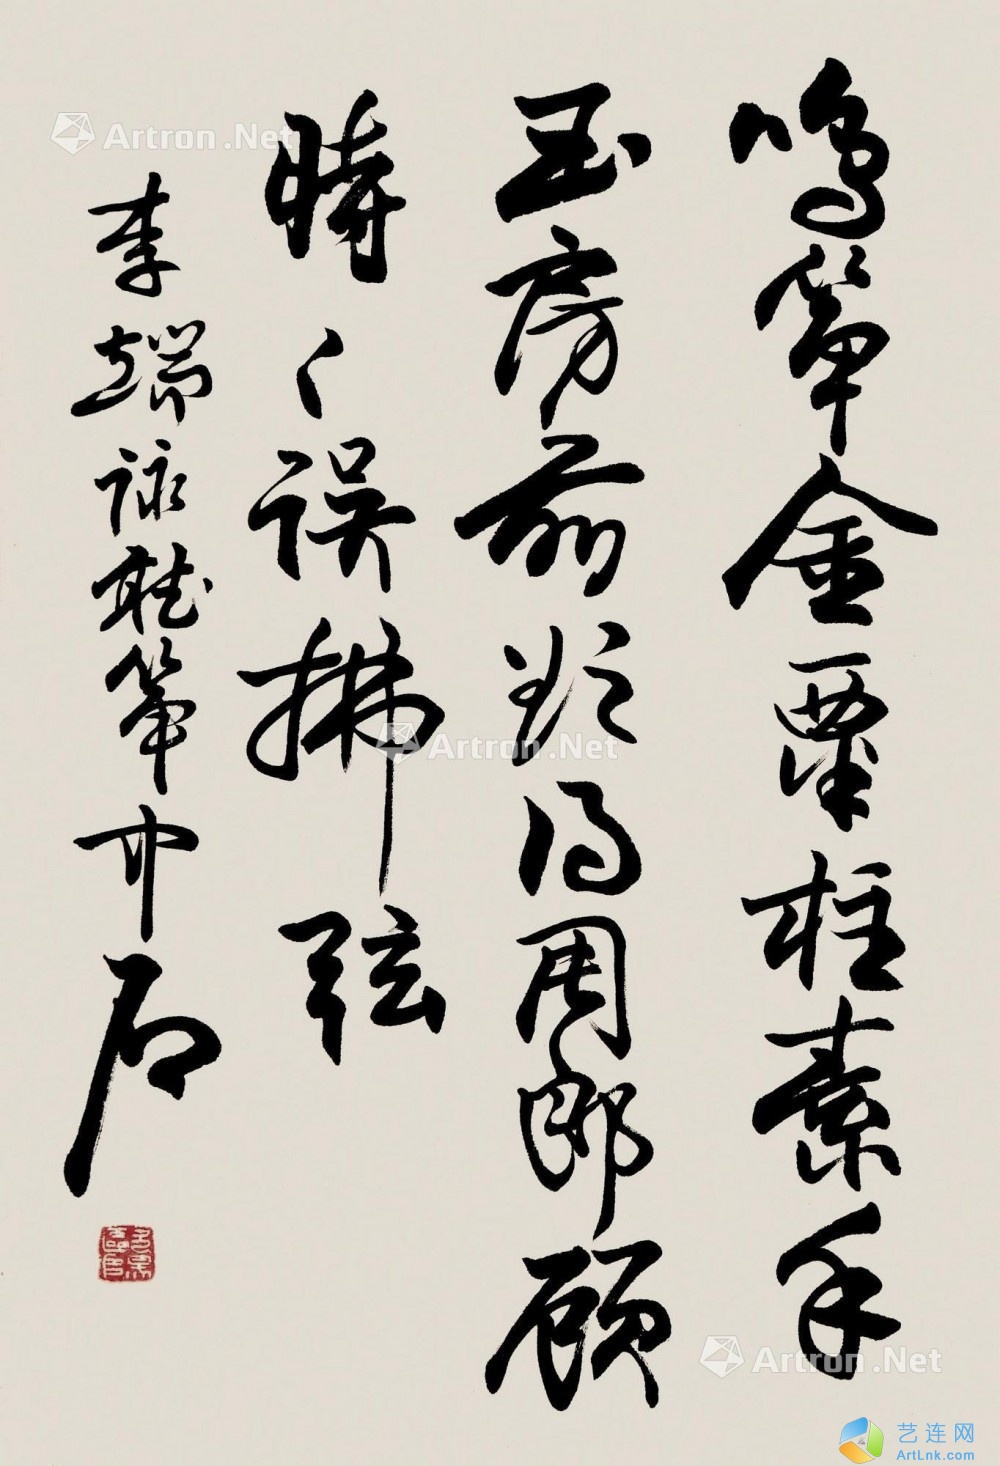 鸣筝金粟柱素手
玉房前欲得周郎顾
时々误拂弦
李端咏听筝 介石
Artron.Net
Artron.Net
Artron.Net
艺连网
ArtLnk.com